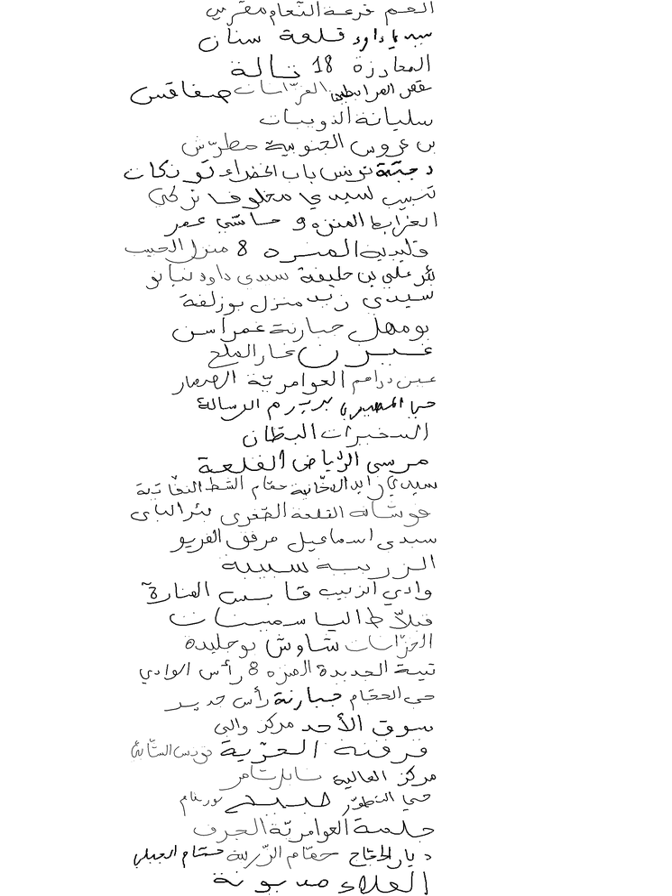 العم فرعة النعام مقرسي
سيدي داود قلعة سنان
المعازرة 18 تالة
نقض المرابطين الخزانات صفاقس
سليانة الذويبات
بن عروس الجنوبية مطرش
دجبة تونس باب الخضراء توزكات
شبيب لسيدي مخلوف تركي
الغرابة المنزه 9 حاسي عمر
قليبية المنزه 8 منزل الحبيب
بئر علي بن خليفة سيدي داود نيانو
سيدي زيد منزل بوزلفة
بومهل جبارنة عمراسن
غبرن غار الملح
عين دراهم العوامرية الصمار
حي المصيري بريرم الرسالة
السخيرات البطان
مرسى الرياض القلعة
سيدي زايد الدخانية حمام الشط النفاتية
هوشانة القلعة الصغرى بئر الباي
سيدي اسماعيل مرفق الفريو
الزريبة سبيبة
وادي الزبيب قابس المنارة
فيلاط الياسمينات
الخزانات شاوش بوجليدة
تيبة الجديدة المنزه 8 رأس الوادي
حي الحمام جبارنة رأس جديد
سوق الأحد مركز والي
قرقنة العزية تونس الثانية
مركز العالية نابل شامر
حي التطور طبلبة بورغام
جلمة العوامرية الجرف
ديار الحجاج حمام الزريبة هشام الجبلي
العلاء مدبونة